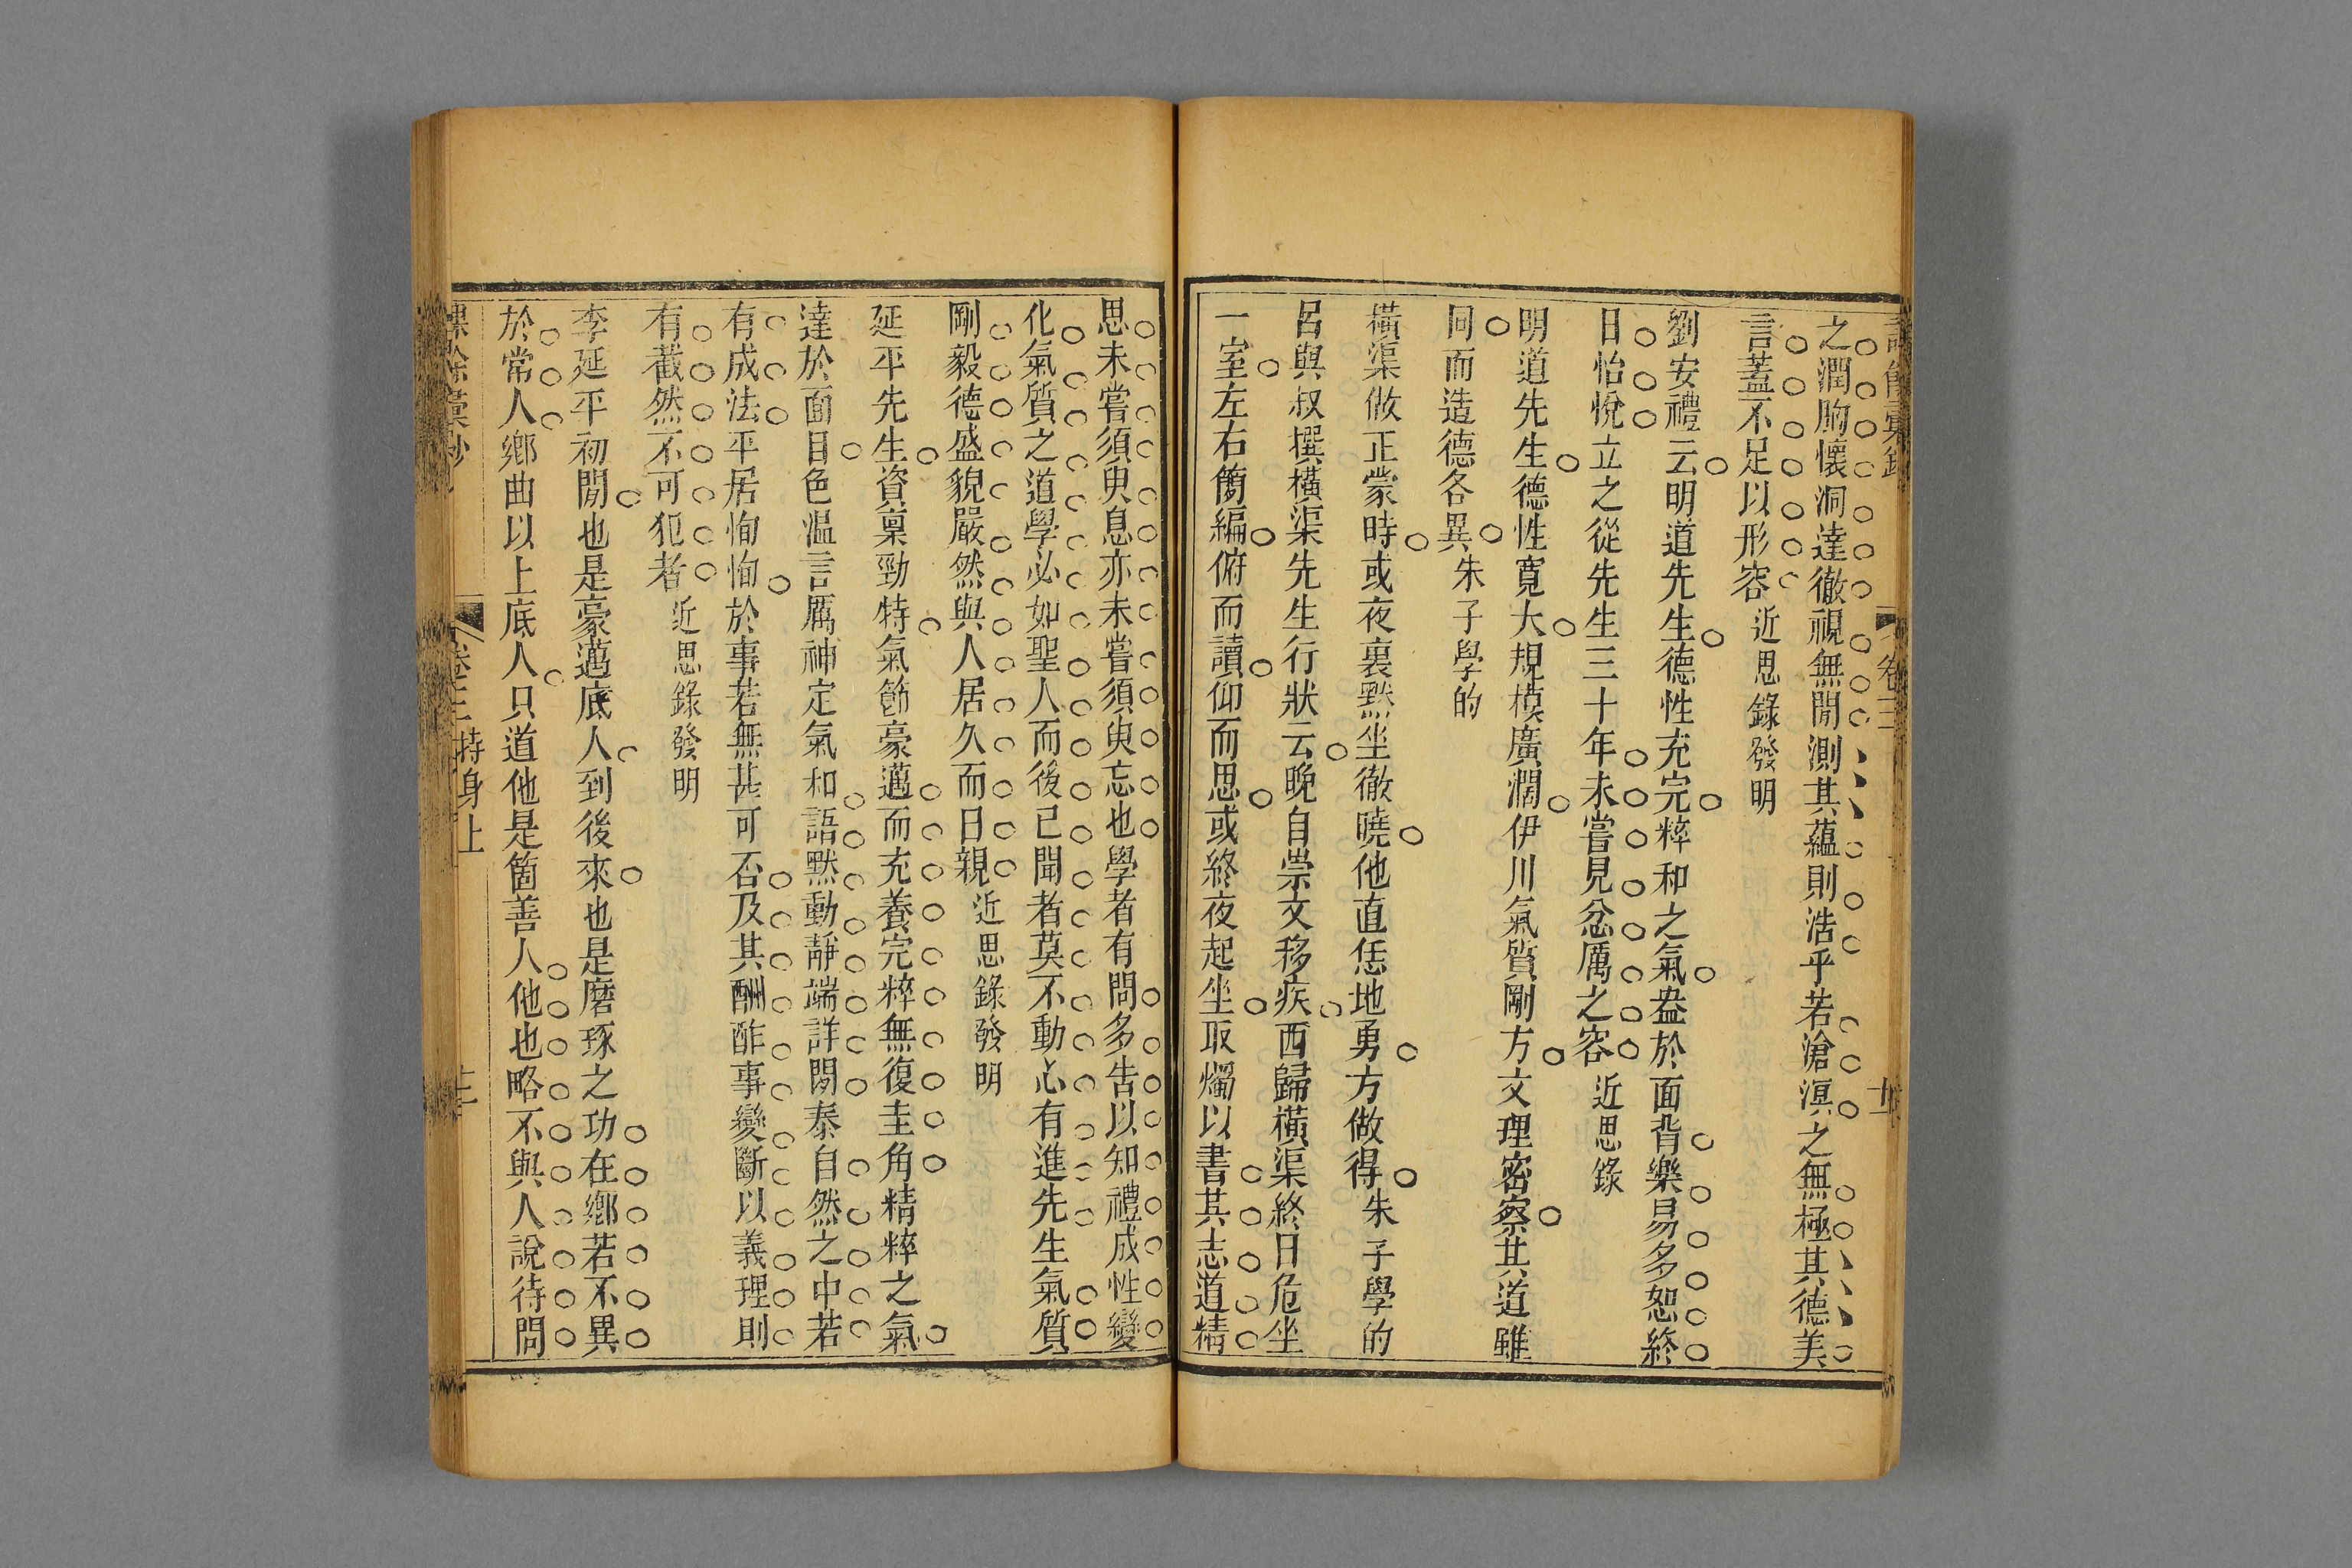 之潤胸懷洞達徹視無閒測其蘊則浩乎若滄溟之無極其德美
言蓋不足以形容 近思錄發明
劉安禮云明道先生德性充完粹和之氣盎於面背樂易多恕終
日怡悅立之從先生三十年未嘗見忿厲之容 近思錄
明道先生德性寬大規模廣濶伊川氣質剛方文理密察其道雖
同而造德各異 朱子學的
橫渠做正蒙時或夜裏默坐徹曉他直恁地勇方做得 朱子學的
呂與叔撰橫渠先生行狀云晚自崇文移疾西歸橫渠終日危坐
一室左右簡編俯而讀仰而思或終夜起坐取燭以書其志道精
思未嘗須臾息亦未嘗須臾忘也學者有問多告以知禮成性變
化氣質之道學必如聖人而後已聞者莫不動心有進先生氣質
剛毅德盛貌嚴然與人居久而日親 近思錄發明
延平先生資稟勁特氣節豪邁而充養完粹無復圭角精粹之氣
達於面目色溫言厲神定氣和語默動靜端詳閒泰自然之中若
有成法平居恂恂於事若無甚可否及其酬酢事變斷以義理則
有截然不可犯者 近思錄發明
李延平初閒也是豪邁底人到後來也是磨琢之功在鄉若不異
於常人鄉曲以上底人只道他是箇善人他也略不與人說待問
卷三 持身上